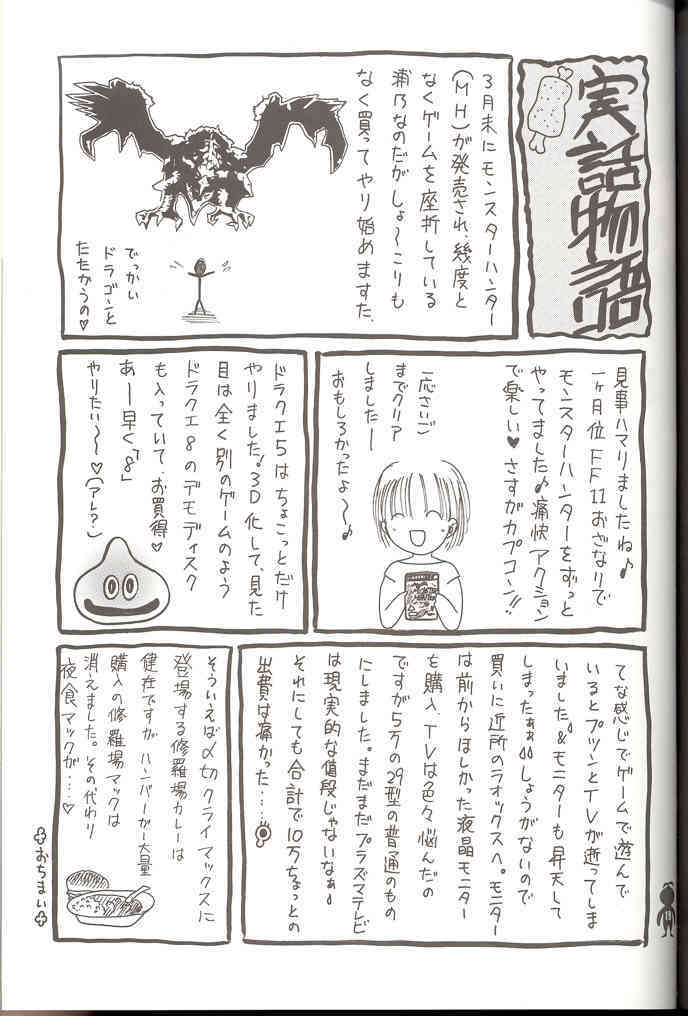 実話物語
3月末にモンスターハンター
(MH)が発売され、幾度と
なくゲームを座折している
浦乃なのだがしょ〜こりも
なく買ってやり始めますた.
でっかい
ドラゴンと
たたかうの♡
見事ハマりましたね♪
一ヶ月位FF11おざなりで
モンスターハンターをずっと
やってました♪痛快アクション
で楽しい♥さすがカプコン!!
一応さいご
までクリア
しましたー
おもしろかったよ〜♪
ドラクエ5はちょこっとだけ
やりました!3D化して、見た
目は全く別のゲームのよう
ドラクエ8のデモディスク
も入っていて、お買得♡
あー早く「8」
やりたい〜♡(アレ?)
てな感じでゲームで遊んで
いるとプツンとTVが逝ってしま
いました。&モニターも昇天して
しまったぁぁ しょうがないので
買いに近所のラオックスへ。モニター
は前からほしかった液晶モニター
を購入、TVは色々悩んだの
ですが5万の29型の普通のもの
にしました。まだまだプラズマテレビ
は現実的な値段じゃないなぁ
それにしても合計で10万ちょっとの
出費は痛かった……
そういえば〆切クライマックスに
登場する修羅場カレーは
健在ですが ハンバーガー大量
購入の修羅場マックは
消えました。その代わり
夜食マックが…♡
おちまい